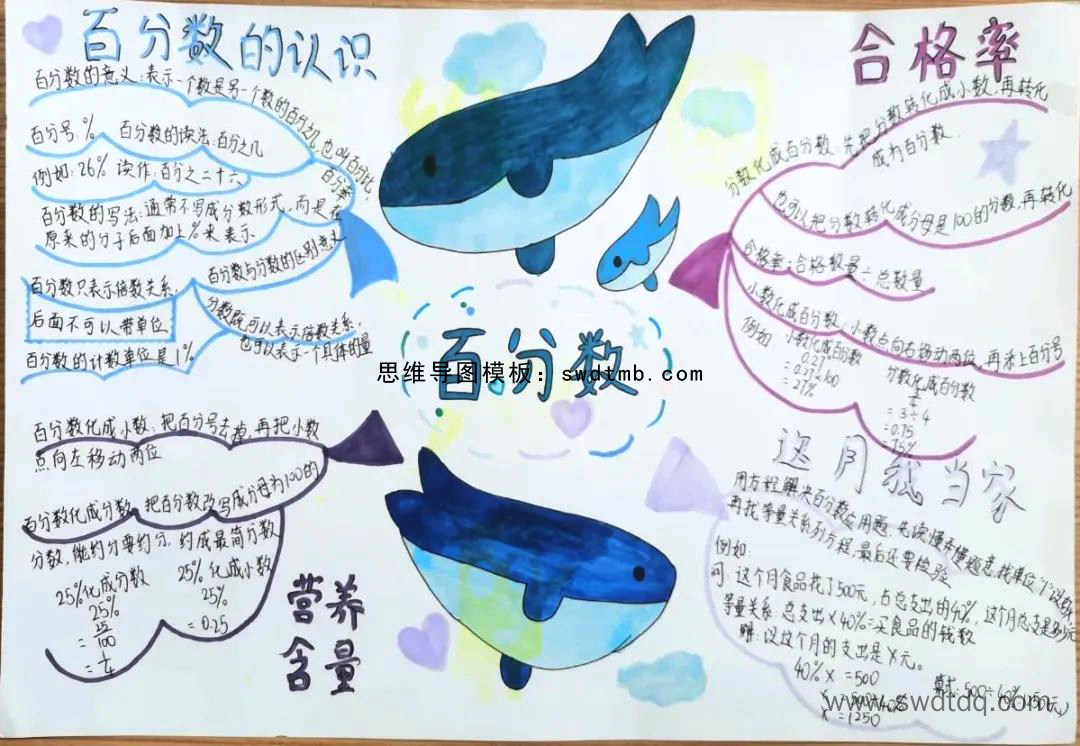 百分数的认识
百分数的意义:表示一个数是另一个数的百分之几,也叫百分比,
百分率
百分号:% 百分数的读法:百分之几
例如:26% 读作:百分之二十六
百分数的写法:通常不写成分数形式,而是在
原来的分子后面加上%来表示
百分数与分数的区别意义
百分数只表示倍数关系,
后面不可以带单位
百分数的计数单位是1%
分数既可以表示倍数关系,
也可以表示一个具体的量
合格率
分数化成百分数:先把分数转化成小数,再转化
成为百分数.
也可以把分数转化成分母是100的分数,再转化
合格率=合格数量÷总数量
小数化成百分数:小数点向右移动两位,再添上百分号
例如:小数化成百分数
0.27
=0.27×100
=27%
分数化成百分数
=3÷4
=0.75
=75%
百分数
思维导图模板:swdtmb.com
百分数化成小数,把百分号去掉,再把小数
点向左移动两位
百分数化成分数,把百分数改写成分母为100的
分数,能约分要约分,约成最简分数
25%化成分数
25%
=25/100
=1/4
25%化成小数
25%
=0.25
营养
含量
这月我当家
用方程解决百分数应用题,先读懂弄懂题意,找单位"1"
再找等量关系列方程,最后还要检验
例如:
问:这个月食品花了500元,占总支出的40%,这个月总支是多少元
等量关系:总支出×40%=买食品的钱数
解:设这个月的支出是X元。
40%X=500
X=500÷40%
X=1250
算式:500÷40%=1250(元)
www.swdtdq.com